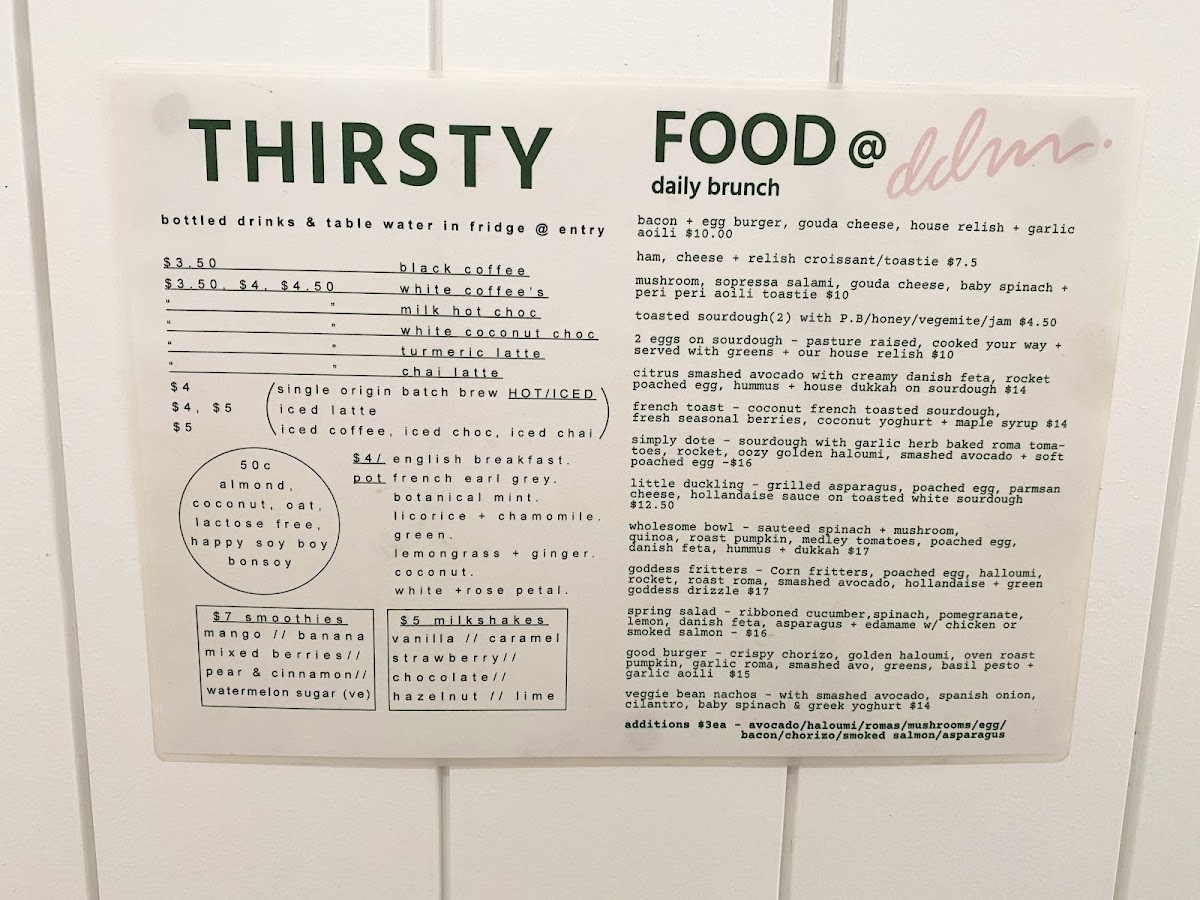 THIRSTY
bottled drinks & table water in fridge @ entry
$3.50 black coffee
$3.50, $4, $4.50 white coffee's
" " milk hot choc
" " white coconut choc
" " turmeric latte
" " chai latte
$4 (single origin batch brew HOT/ICED)
$4, $5 iced latte
$5 iced coffee, iced choc, iced chai
50c
almond,
coconut, oat,
lactose free,
happy soy boy
bonsoy
$4/ english breakfast.
pot french earl grey.
botanical mint.
licorice + chamomile.
green.
lemongrass + ginger.
coconut.
white +rose petal.
$7 smoothies
mango // banana
mixed berries//
pear & cinnamon//
watermelon sugar (ve)
$5 milkshakes
vanilla // caramel
strawberry//
chocolate//
hazelnut // lime
FOOD @ ddm.
daily brunch
bacon + egg burger, gouda cheese, house relish + garlic
aoili $10.00
ham, cheese + relish croissant/toastie $7.5
mushroom, sopressa salami, gouda cheese, baby spinach +
peri peri aoili toastie $10
toasted sourdough(2) with P.B/honey/vegemite/jam $4.50
2 eggs on sourdough - pasture raised, cooked your way +
served with greens + our house relish $10
citrus smashed avocado with creamy danish feta, rocket
poached egg, hummus + house dukkah on sourdough $14
french toast - coconut french toasted sourdough,
fresh seasonal berries, coconut yoghurt + maple syrup $14
simply dote - sourdough with garlic herb baked roma toma-
toes, rocket, oozy golden haloumi, smashed avocado + soft
poached egg -$16
little duckling - grilled asparagus, poached egg, parmsan
cheese, hollandaise sauce on toasted white sourdough
$12.50
wholesome bowl - sauteed spinach + mushroom,
quinoa, roast pumpkin, medley tomatoes, poached egg,
danish feta, hummus + dukkah $17
goddess fritters - Corn fritters, poached egg, halloumi,
rocket, roast roma, smashed avocado, hollandaise + green
goddess drizzle $17
spring salad - ribboned cucumber,spinach, pomegranate,
lemon, danish feta, asparagus + edamame w/ chicken or
smoked salmon - $16
good burger - crispy chorizo, golden haloumi, oven roast
pumpkin, garlic roma, smashed avo, greens, basil pesto +
garlic aoili $15
veggie bean nachos - with smashed avocado, spanish onion,
cilantro, baby spinach & greek yoghurt $14
additions $3ea - avocado/haloumi/romas/mushrooms/egg/
bacon/chorizo/smoked salmon/asparagus